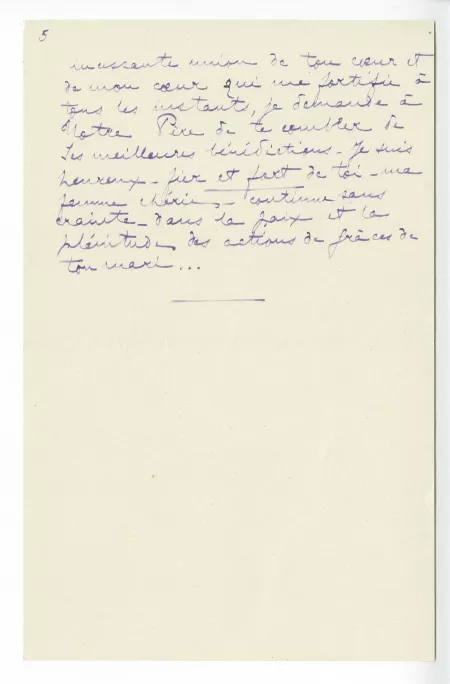 5
incessante union de ton cœur et
de mon cœur qui me fortifie à
tous les instants, je demande à
Notre Père de te combler de
Ses meilleures bénédictions - Je suis
heureux - fier et fort de toi - ma
femme chérie, - continue sans
crainte - dans la paix et la
plénitude des actions de grâces de
ton mari ...